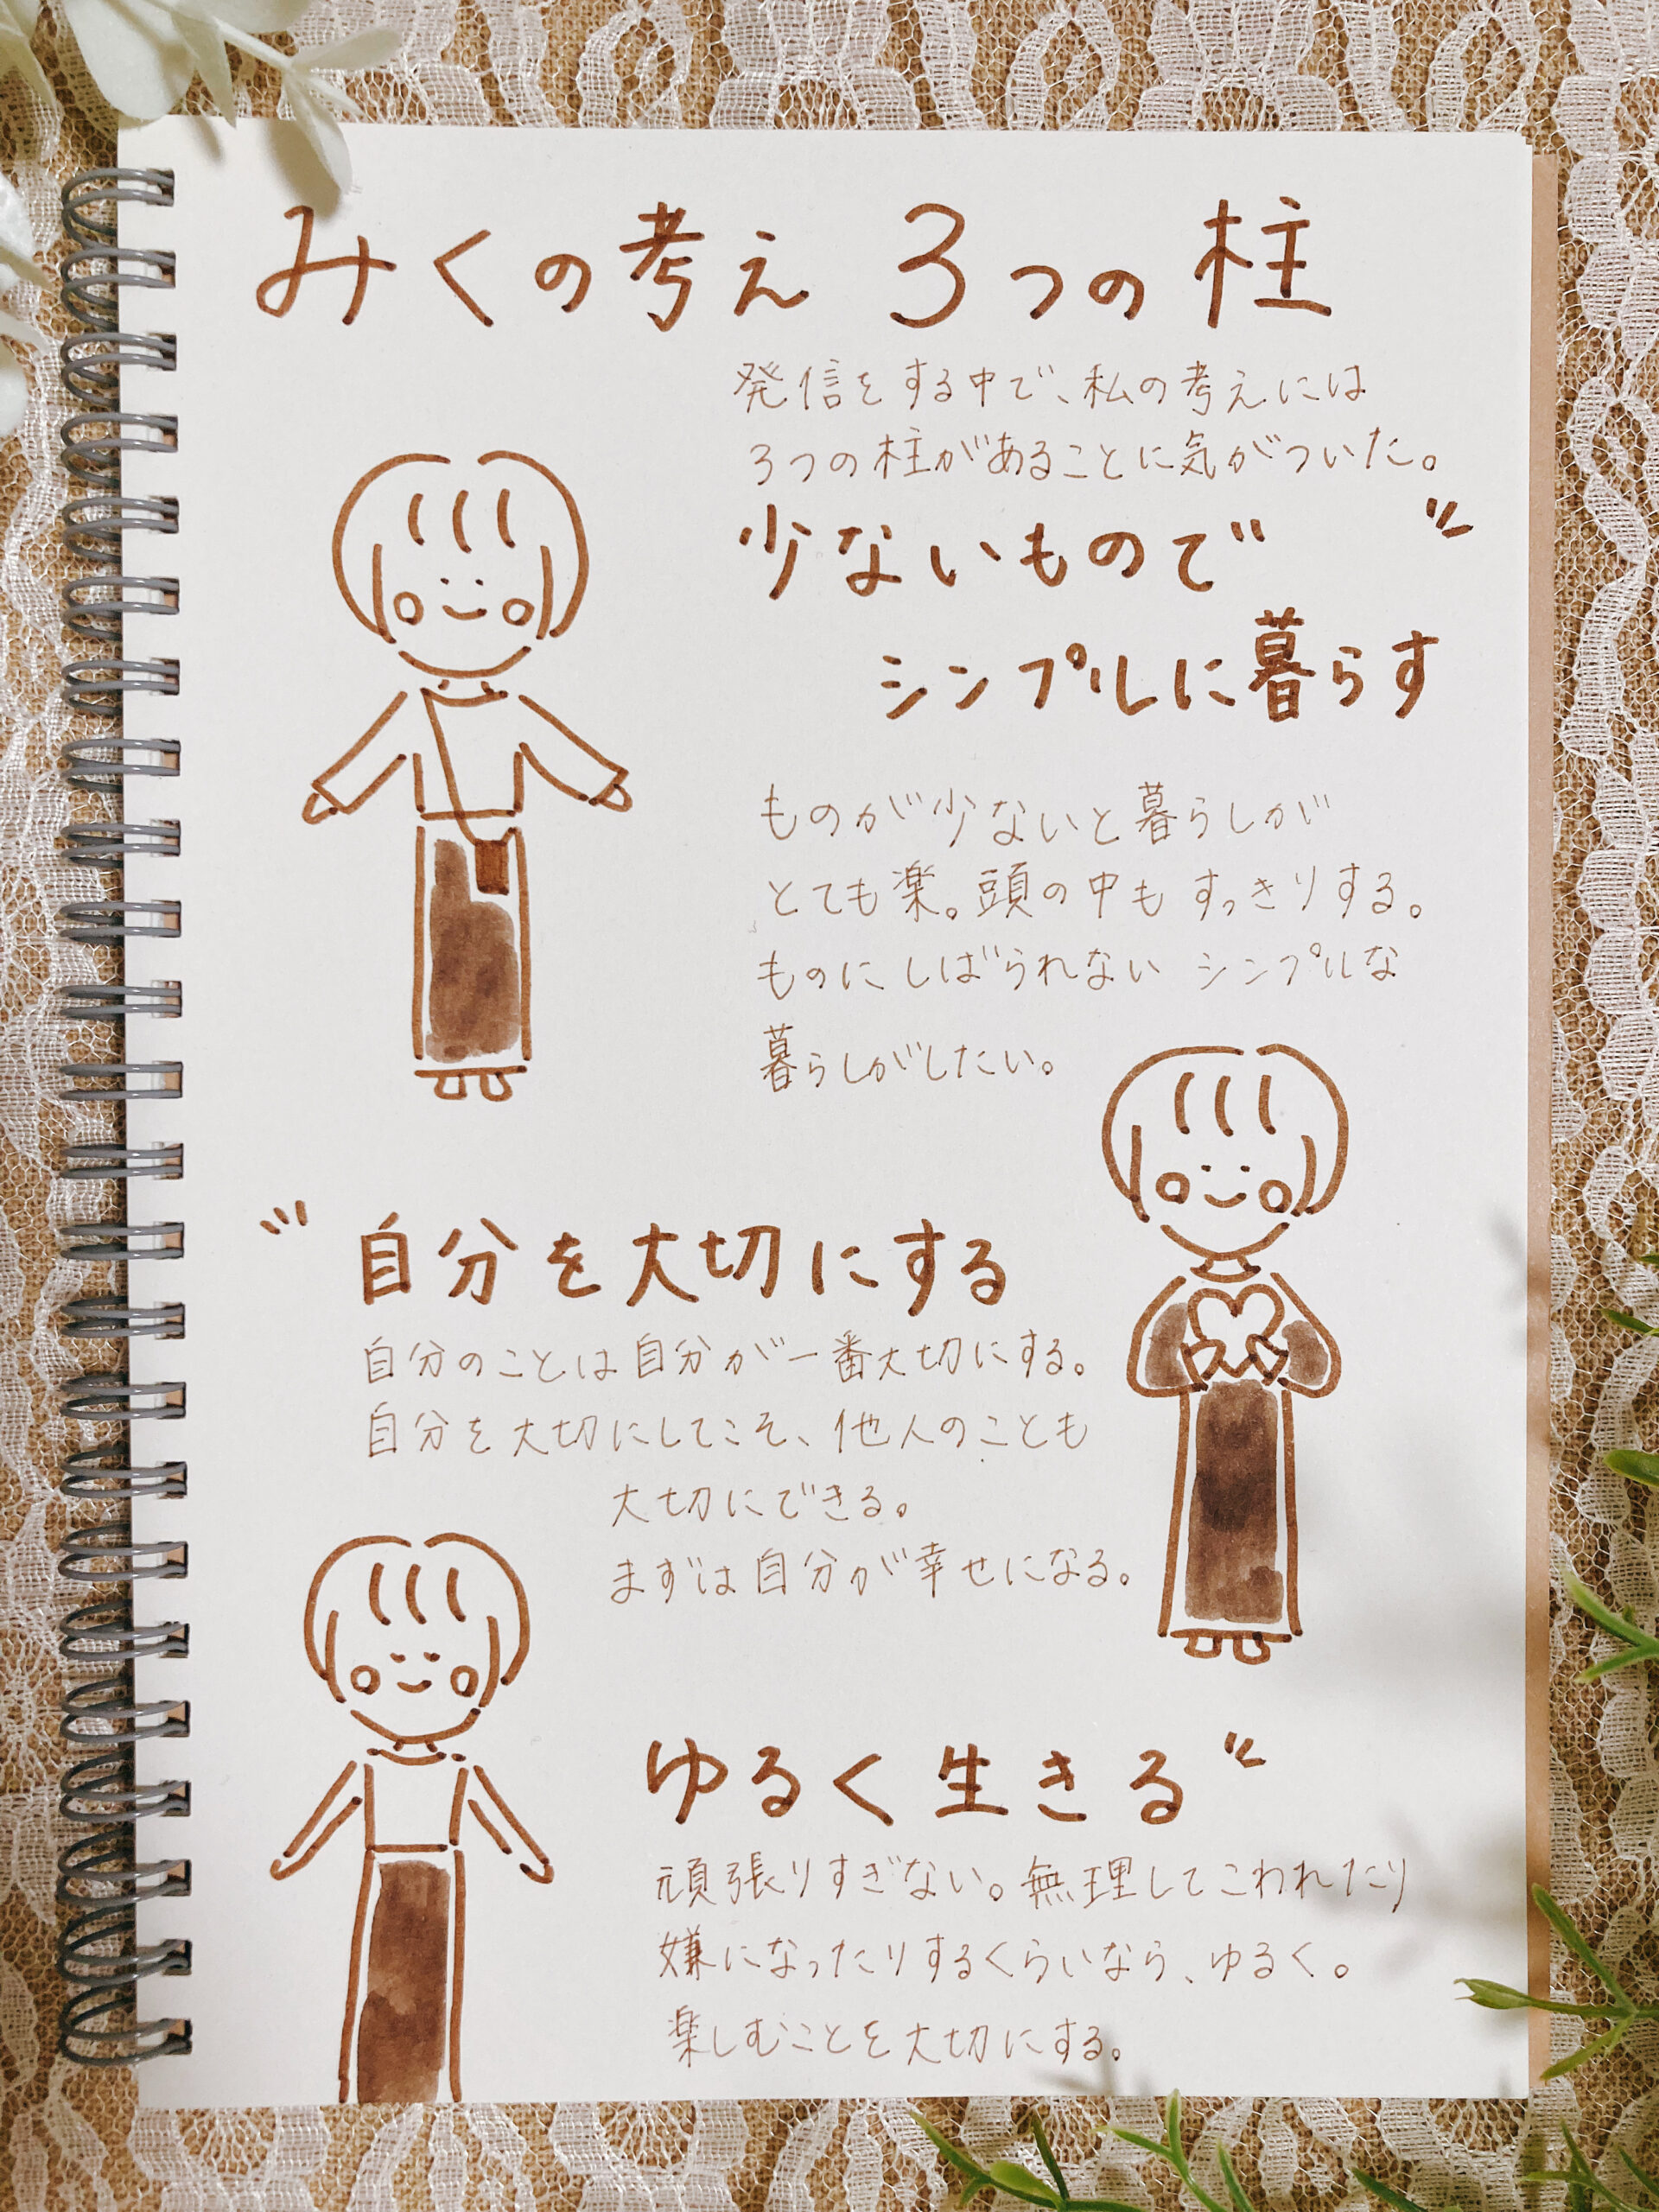 みくの考え 3つの柱
発信をする中で、私の考えには
3つの柱があることに気がついた。
少ないもので
シンプルに暮らす
ものが少ないと暮らしが
とても楽。頭の中もすっきりする。
ものにしばられない シンプルな
暮らしがしたい。
自分を大切にする
自分のことは自分が一番大切にする。
自分を大切にしてこそ、他人のことも
大切にできる。
まずは自分が幸せになる。
ゆるく生きる
頑張りすぎない。無理してこわれたり
嫌になったりするくらいなら、ゆるく。
楽しむことを大切にする。